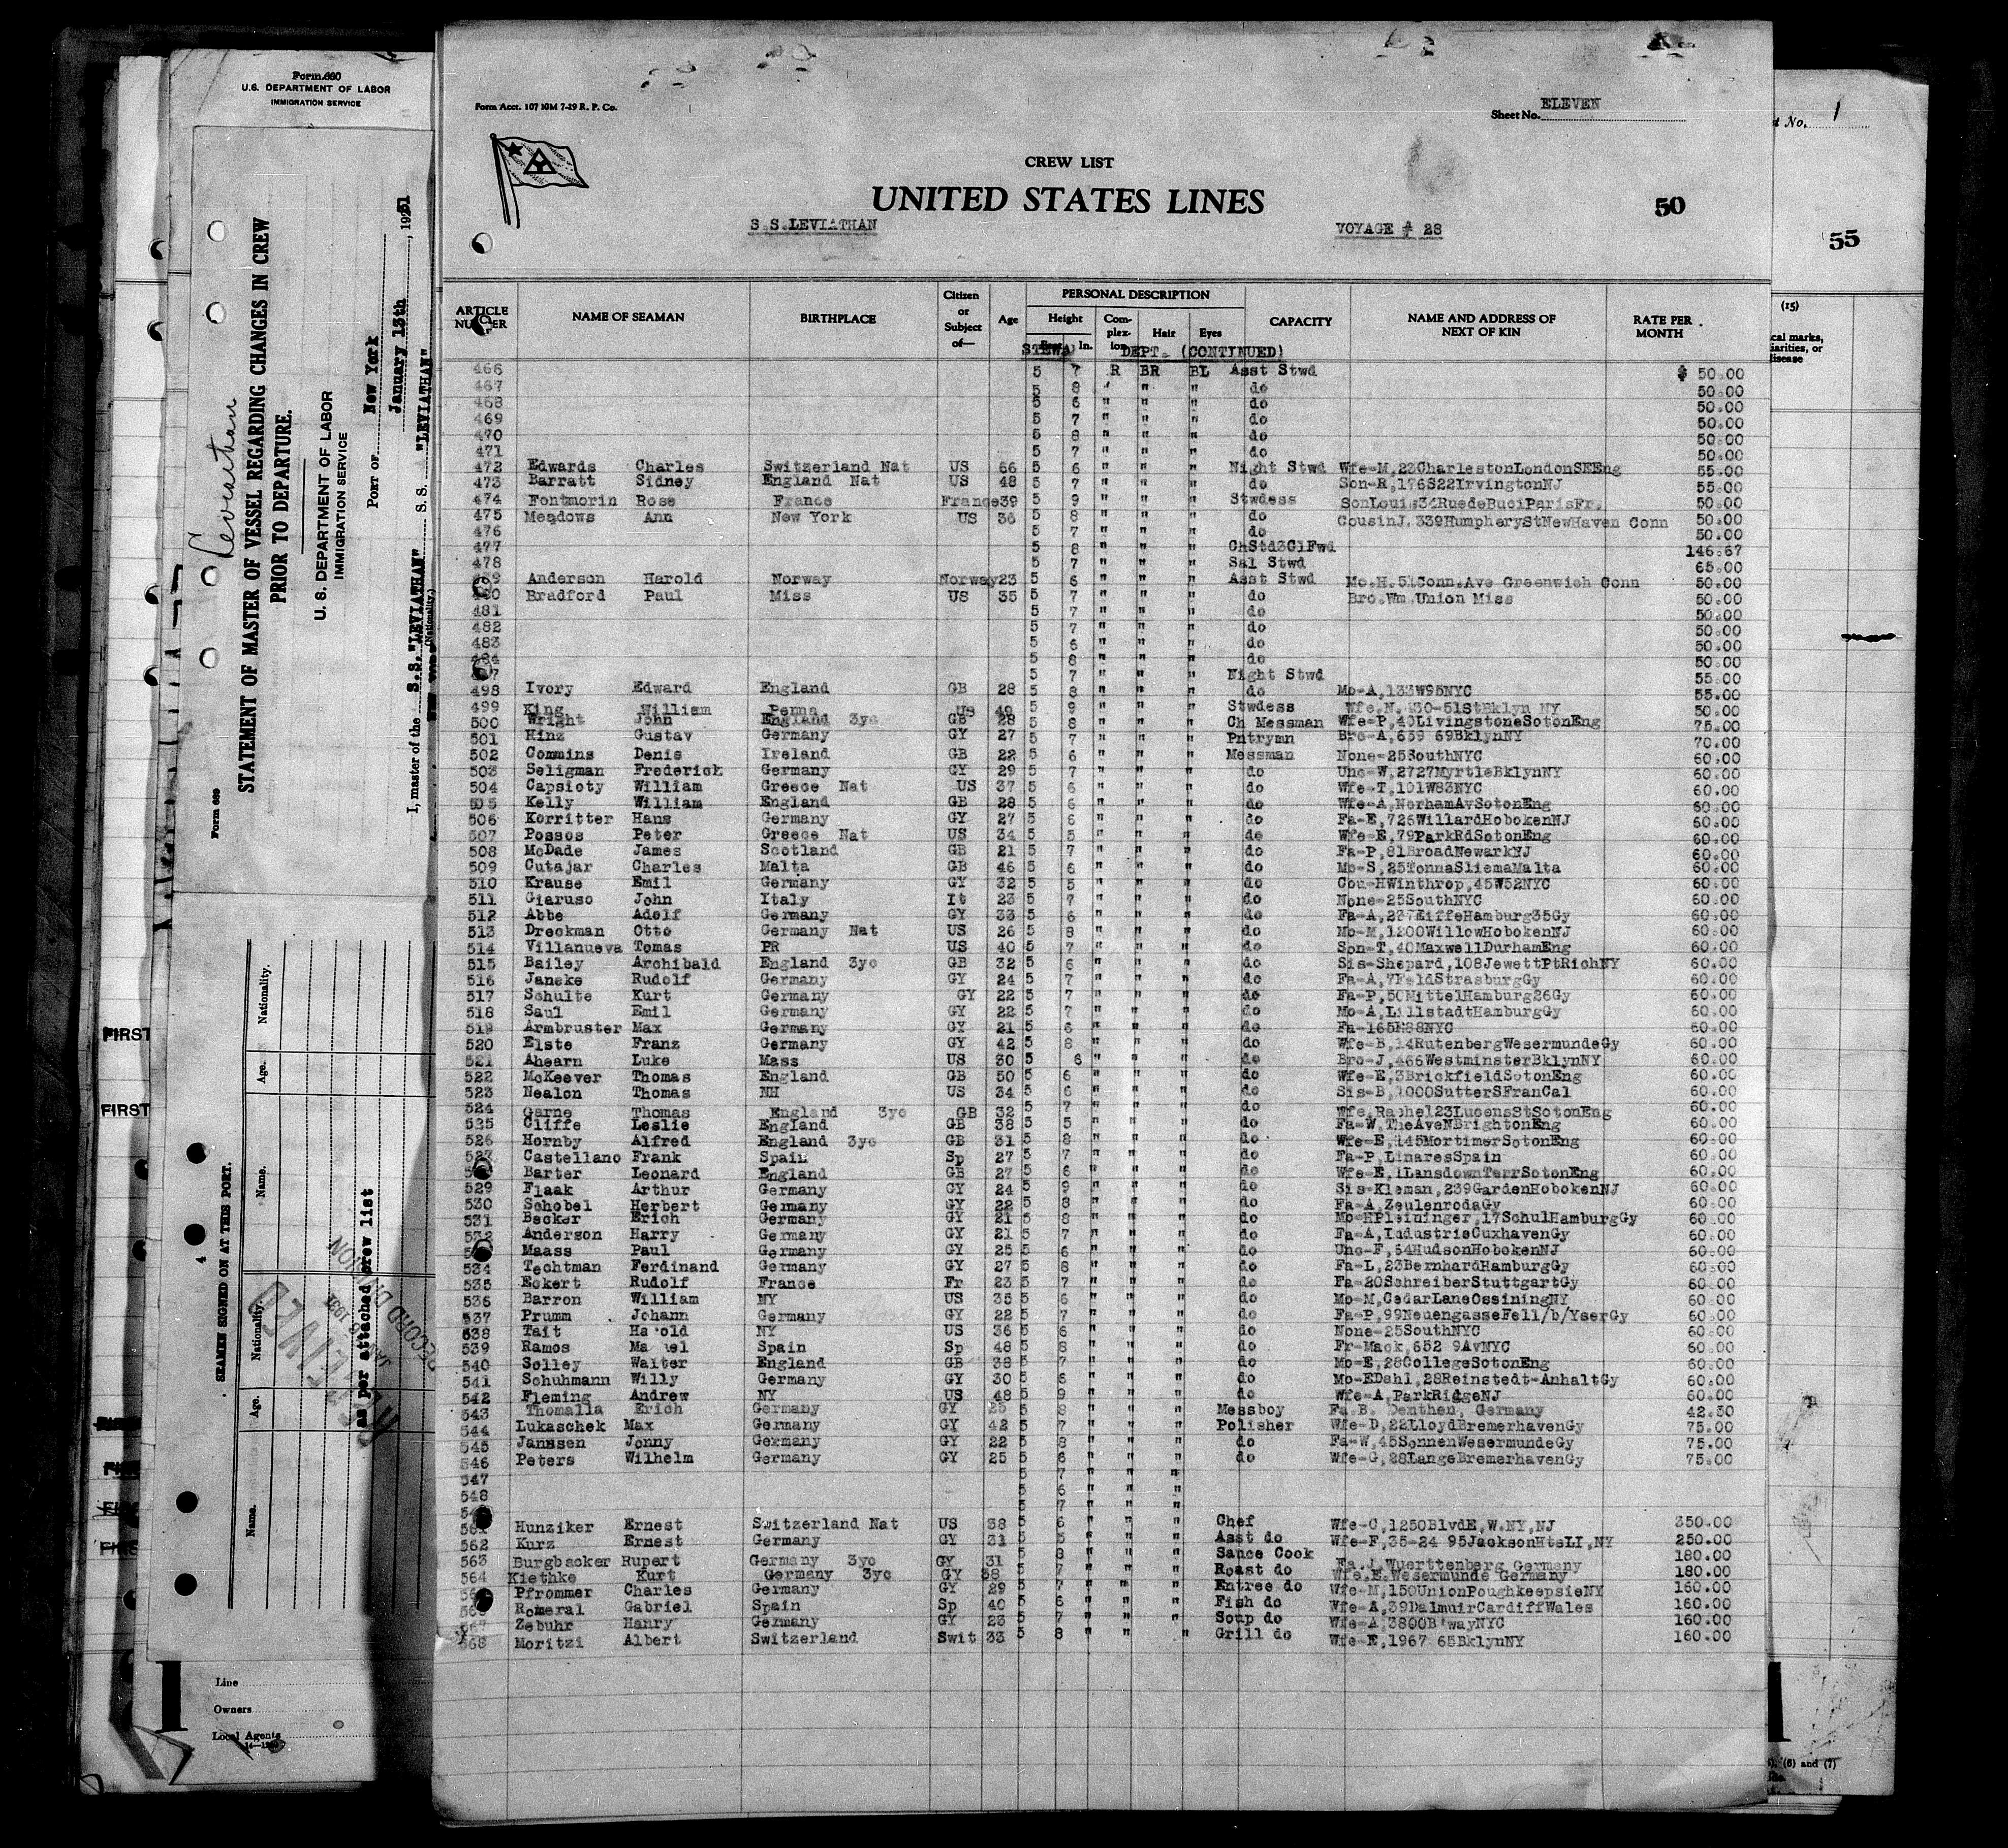 Form 680
U.S. DEPARTMENT OF LABOR
IMMIGRATION SERVICE
Leviathan
STATEMENT OF MASTER OF VESSEL REGARDING CHANGES IN CREW
PRIOR TO DEPARTURE.
U. S. DEPARTMENT OF LABOR
IMMIGRATION SERVICE
PORT OF New York
January 13th, 1931
I, master of the S.S. "LEVIATHAN" S. S. "LEVIATHAN"
(Nationality.)
Form 689
Nationality.
Age.
Name.
SEAMEN SIGNED ON AT THIS PORT.
as per attached crew list
RECEIVED
RECORD DIVISION
Line
Owners
Local Agents
FIRST
FIRST
Form Acct. 107 10M 7-29 R. P. Co.
Sheet No. ELEVEN
CREW LIST
UNITED STATES LINES
S.S.LEVIATHAN
VOYAGE # 28
50
ARTICLE NUMBER NAME OF SEAMAN BIRTHPLACE Citizen or Subject of— Age PERSONAL DESCRIPTION Height Feet In. Complexion Hair Eyes CAPACITY NAME AND ADDRESS OF NEXT OF KIN RATE PER MONTH
DEPT. (CONTINUED)
466 5 7 R BR BL Asst Stwd $ 50.00
467 5 8 " " " do 50.00
468 5 6 " " " do 50.00
469 5 7 " " " do 50.00
470 5 8 " " " do 50.00
471 5 7 " " " do 50.00
472 Edwards Charles Switzerland Nat US 56 5 6 " " " Night Stwd Wfe-M,23CharlestonLondonSEEng 55.00
473 Barratt Sidney England Nat US 48 5 7 " " " do Son-R,176S22IrvingtonNJ 55.00
474 Fontmorin Rose France France39 5 9 " " " Stwdess SonLouis34RuedeBuciParisFr. 50.00
475 Meadows Ann New York US 36 5 8 " " " do CousinJ.339HumpheryStNewHaven Conn 50.00
476 5 7 " " " do 50.00
477 5 8 " " " ChStd3ClFwd 146.67
478 5 7 " " " Sal Stwd 65.00
Anderson Harold Norway Norway23 5 6 " " " Asst Stwd Mo.H.51Conn.Ave Greenwich Conn 50.00
Bradford Paul Miss US 35 5 7 " " " do Bro.Wm.Union Miss 50.00
481 5 7 " " " do 50.00
482 5 7 " " " do 50.00
483 5 6 " " " do 50.00
484 5 8 " " " do 50.00
5 7 " " " Night Stwd 55.00
498 Ivory Edward England GB 28 5 8 " " " do Mo-A,133W95NYC 55.00
499 King William Penna US 40 5 9 " " " Stwdess Wfe.N.430-51StBklyn NY 50.00
500 Wright John England 3yc GB 28 5 8 " " " Ch Messman Wfe-P,40LivingstoneSotonEng 75.00
501 Hinz Gustav Germany GY 27 5 7 " " " Pntrymn Bro-A,659 69BklynNY 70.00
502 Commins Denis Ireland GB 22 5 6 " " " Messman None-25SouthNYC 60.00
503 Seligman Frederick Germany GY 29 5 7 " " " do Unc-W,2727MyrtleBklynNY 60.00
504 Capsioty William Greece Nat US 37 5 6 " " " do Wfe-T,101W83NYC 60.00
505 Kelly William England GB 28 5 6 " " " do Wfe-A,NorhamAvSotonEng 60.00
506 Korritter Hans Germany GY 27 5 6 " " " do Fa-E,726WillardHobokenNJ 60.00
507 Possos Peter Greece Nat US 34 5 5 " " " do Wfe-E,79ParkRdSotonEng 60.00
508 McDade James Scotland GB 21 5 7 " " " do Fa-P,81BroadNewarkNJ 60.00
509 Cutajar Charles Malta GB 46 5 6 " " " do Mo-S,25TonnaSliemaMalta 60.00
510 Krause Emil Germany GY 32 5 5 " " " do Cou-HWinthrop,45W52NYC 60.00
511 Giaruso John Italy It 23 5 7 " " " do None-25SouthNYC 60.00
512 Abbe Adolf Germany GY 33 5 6 " " " do Fa-A,237EiffeHamburg35Gy 60.00
513 Dreckman Otto Germany Nat US 26 5 8 " " " do Mo-M,1200WillowHobokenNJ 60.00
514 Villanueva Tomas PR US 40 5 7 " " " do Son-T,40MaxwellDurhamEng 60.00
515 Bailey Archibald England 3yc GB 32 5 6 " " " do Sis-Shepard,108JewettPtRichNY 60.00
516 Jancke Rudolf Germany GY 24 5 7 " " " do Fa-A,7FeldStrasburgGy 60.00
517 Schulte Kurt Germany GY 22 5 7 " " " do Fa-P,50MittelHamburg26Gy 60.00
518 Saul Emil Germany GY 22 5 7 " " " do Mo-A,LillstadtHamburgGy 60.00
519 Armbruster Max Germany GY 21 5 6 " " " do Fa-165E88NYC 60.00
520 Elste Franz Germany GY 42 5 8 " " " do Wfe-B,14RutenbergWesermundeGy 60.00
521 Ahearn Luke Mass US 30 5 6 " " " do Bro-J,466WestminsterBklynNY 60.00
522 McKeever Thomas England GB 50 5 6 " " " do Wfe-E,3BrickfieldSotonEng 60.00
523 Nealon Thomas NH US 34 5 6 " " " do Sis-B,1000SutterSFranCal 60.00
524 Garne Thomas England 3yc GB 32 5 7 " " " do Wfe.Rachel23LucensStSotonEng 60.00
535 Cliffe Leslie England GB 38 5 5 " " " do Fa-W,TheAveNBrightonEng 60.00
526 Hornby Alfred England 3yc GB 31 5 8 " " " do Wfe-E,145MortimerSotonEng 60.00
527 Castellano Frank Spain Sp 27 5 7 " " " do Fa-P,LinaresSpain 60.00
Barter Leonard England GB 27 5 6 " " " do Wfe-E,1LansdownTerrSotonEng 60.00
529 Flaak Arthur Germany GY 24 5 9 " " " do Sis-Kleman,239GardenHobokenNJ 60.00
530 Schobel Herbert Germany GY 22 5 8 " " " do Fa-A,ZeulenrodaGy 60.00
531 Becker Erich Germany GY 21 5 8 " " " do Mo-HPleininger,17SchulHamburgGy 60.00
532 Anderson Harry Germany GY 21 5 7 " " " do Fa-A,IndustrieCuxhavenGy 60.00
Maass Paul Germany GY 25 5 6 " " " do Unc-F,54HudsonHobokenNJ 60.00
534 Techtman Ferdinand Germany GY 27 5 8 " " " do Fa-L,23BernhardHamburgGy 60.00
535 Eckert Rudolf France Fr 23 5 7 " " " do Fa-20SchreiberStuttgartGy 60.00
536 Barron William NY US 35 5 6 " " " do Mo-M,CedarLaneOssiningNY 60.00
537 Prumm Johann Germany GY 22 5 7 " " " do Fa-P,99NeuengasseFell/b/YserGy 60.00
538 Tait Harold NY US 36 5 6 " " " do None-25SouthNYC 60.00
539 Ramos Manuel Spain Sp 48 5 8 " " " do Fr-Mack,652 9AvNYC 60.00
540 Solley Walter England GB 38 5 7 " " " do Mo-E,28CollegeSotonEng 60.00
541 Schuhmann Willy Germany GY 30 5 6 " " " do Mo-EDahl,28Reinstedt-AnhaltGy 60.00
542 Fleming Andrew NY US 48 5 9 " " " do Wfe-A,ParkRidgeNJ 60.00
543 Thomalla Erich Germany GY 25 5 8 " " " Messboy Fa B. Denthen, Germany 42.50
544 Lukaschek Max Germany GY 42 5 7 " " " Polisher Wfe-D,22LloydBremerhavenGy 75.00
545 Janssen Jonny Germany GY 22 5 8 " " " do Fa-W,45SonnenWesermundeGy 75.00
546 Peters Wilhelm Germany GY 25 5 6 " " " do Wfe-G,28LangeBremerhavenGy 75.00
547 5 7 " " "
548 5 6 " " "
5 7 " " "
561 Hunziker Ernest Switzerland Nat US 38 5 6 " " " Chef Wfe-C,1250BlvdE,W.NY,NJ 350.00
562 Kurz Ernest Germany GY 31 5 5 " " " Asst do Wfe-F,35-24 95JacksonHtsLI,NY 250.00
563 Burgbacker Rupert Germany 3yc GY 31 5 8 " " " Sauce Cook Fa.J.Wuerttenberg Germany 180.00
564 Kiethke Kurt Germany 3yc GY 38 5 7 " " " Roast do Wfe.E.Wesermunde Germany 180.00
Pfrommer Charles Germany GY 29 5 7 " " " Entree do Wfe-M,150UnionPoughkeepsieNY 160.00
Romeral Gabriel Spain Sp 40 5 6 " " " Fish do Wfe-A,39DalmuirCardiffWales 160.00
567 Zebuhr Hanry Germany GY 23 5 7 " " " Soup do Wfe-A,3800B'wayNYC 160.00
568 Moritzi Albert Switzerland Swit 33 5 8 " " " Grill do Wfe-E,1967 65BklynNY 160.00
No. 1
55
(15)
cal marks,
iarities, or
disease
(6) and (7)